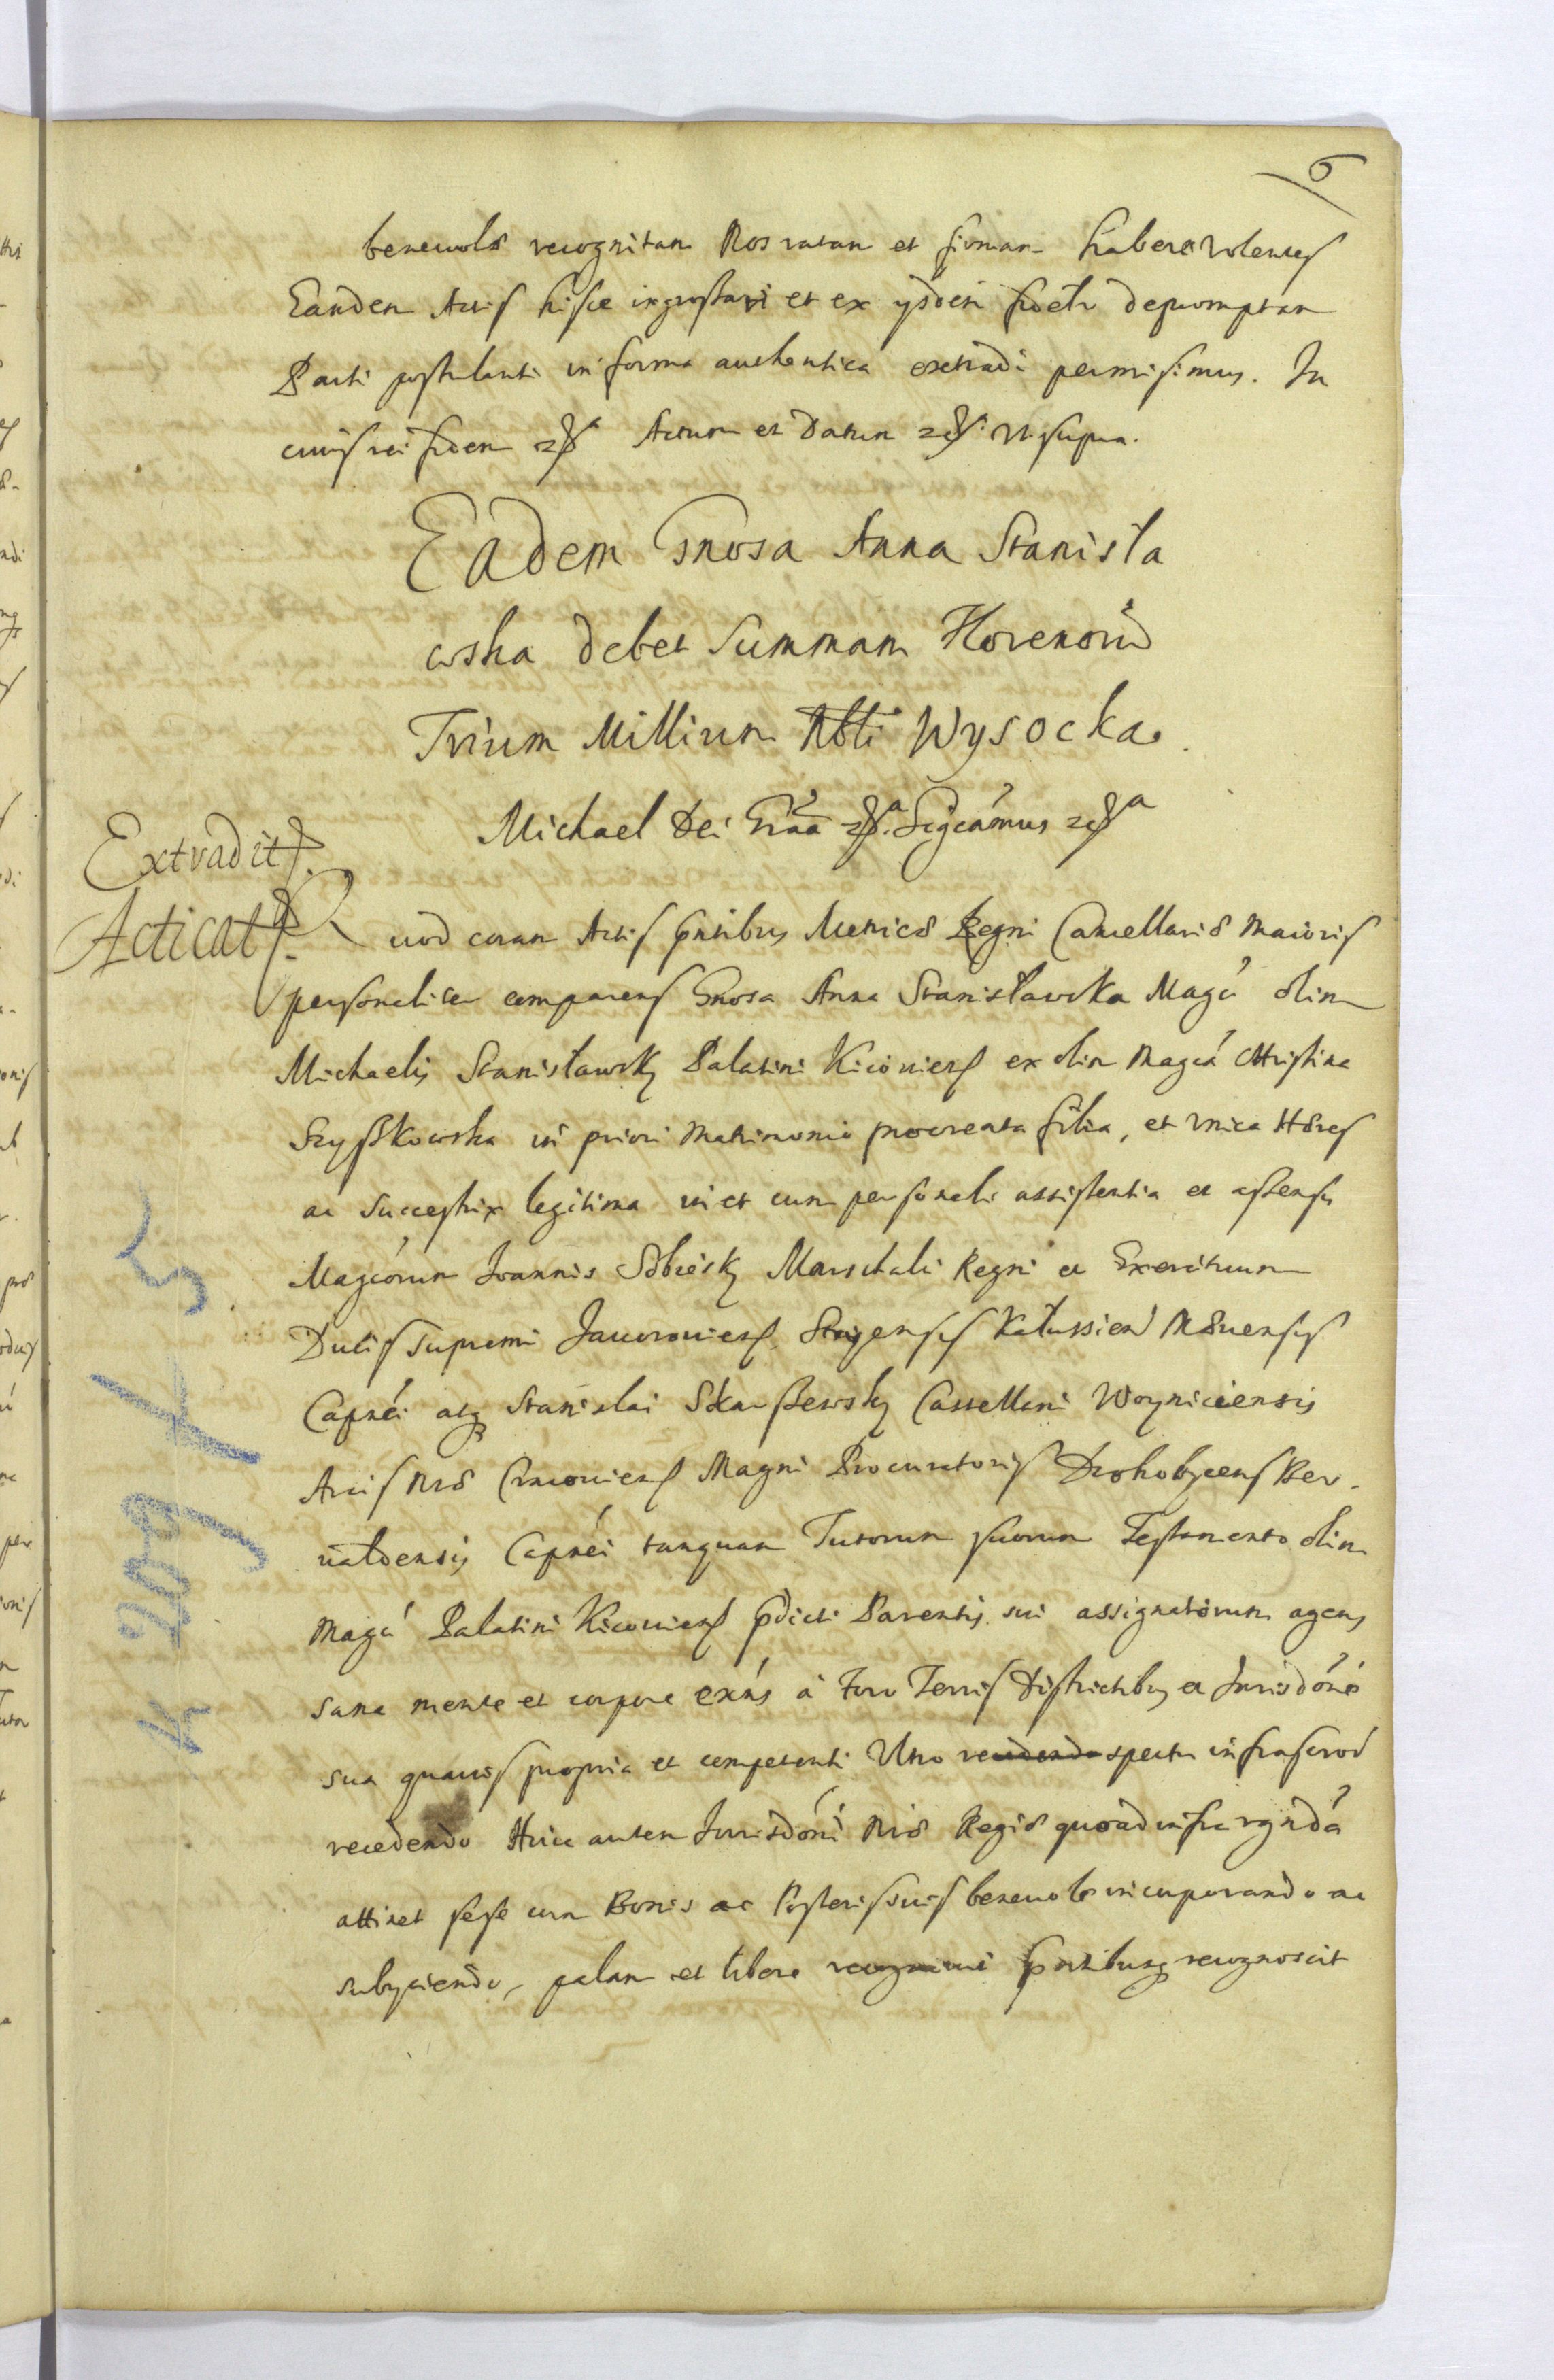 6
benevole recognitam Nos ratam et firmam habere volentes
Eandem Actis hisce ingrossari et ex ysdem fidelr depromptam
Parti postulanti in forma authentica extradi permisimus. In
cuius rei fidem etc Actum et Datum etc. Vt supra.
Eadem Gnosa Anna Stanisła
wska debet Summam Florenorū
Trium Millium Nbli Wysocka.
Michael Dei Gráa etc. Sigcámus etc
Extradit.
Acticat.
Quod coram Actis pntibus Metricæ Regni Cancellariæ Maioris
personaliter comparens Gnosa Anna Stanisławska Magci olim
Michaelis Stanisławsky Palatini Kiiouiens ex olim Magca Christina
Szyszkowska in priori Matrimonio procreata filia, et vnica Hæres
ac Successtrix legitima in et cum personali assistentia et assensu
Magcorum Joannis Sobiesky Marschalci Regni et Exercituum
Ducis supremi Jaworouiens, Stryensis Kałussien Mæuensis
Capnei atq Stanislai Skarszewsky Castellani Woyniciensis
Arcis Nræ Cracouiens Magni Procuratoris Drohobycens Ber-
ualdensis Capnei tanquam Tutorum suorum Testamento olim
Magci Palatini Kiiouiens pdicti Parentis sui assignatorum agens
sana mente et corpore exńs à Foro Terris Districtibus et Jurisdóne
sua quauis propria et competenti Utro spectn infrascrod
recedendo Huic autem Jurisdóni Nræ Regiæ quoad infra rgnda
attinet sese cum Bonis ac Posteris suis benevole incorporando ac
subyciendo, palam et libere pntibusq recognoscit
K 209 f 5